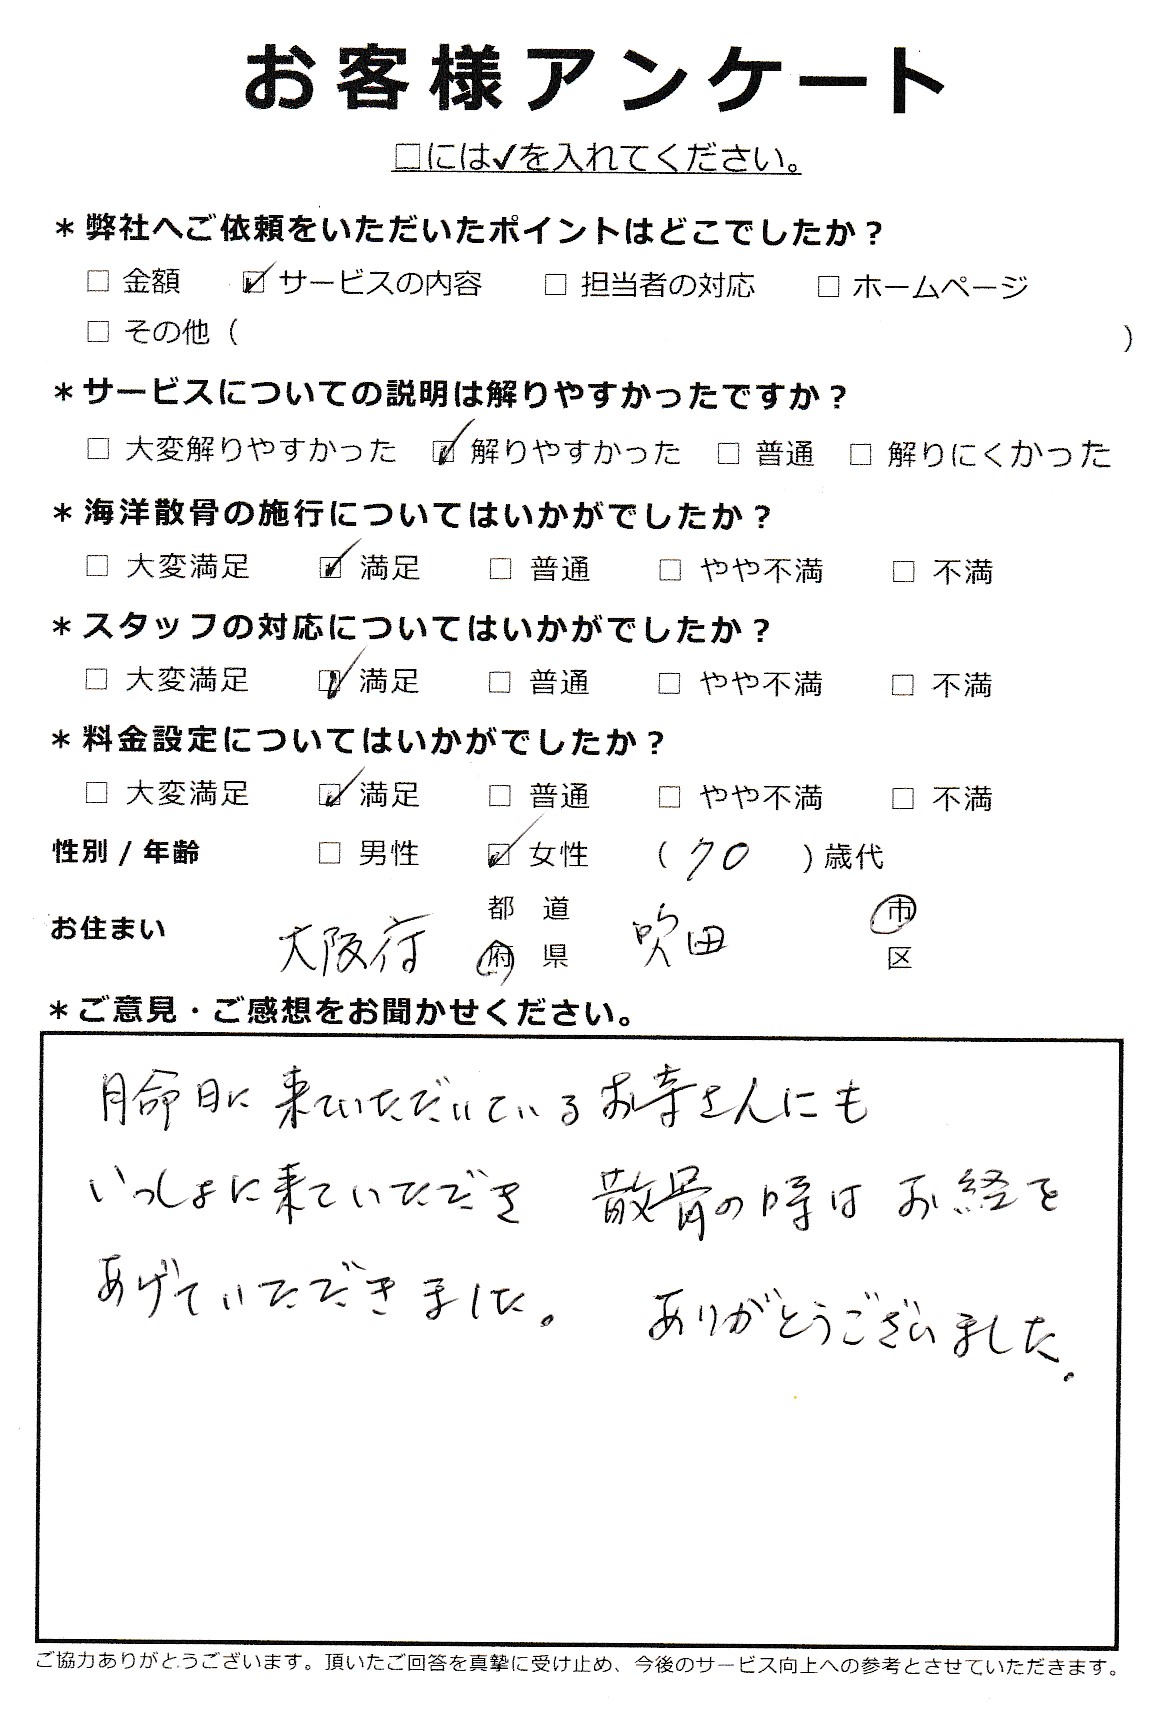 お客様アンケート
□には✓を入れてください。
＊弊社へご依頼をいただいたポイントはどこでしたか？
□ 金額 ☑ サービスの内容 □ 担当者の対応 □ ホームページ
□ その他（ ）
＊サービスについての説明は解りやすかったですか？
□ 大変解りやすかった ☑ 解りやすかった □ 普通 □ 解りにくかった
＊海洋散骨の施行についてはいかがでしたか？
□ 大変満足 ☑ 満足 □ 普通 □ やや不満 □ 不満
＊スタッフの対応についてはいかがでしたか？
□ 大変満足 ☑ 満足 □ 普通 □ やや不満 □ 不満
＊料金設定についてはいかがでしたか？
□ 大変満足 ☑ 満足 □ 普通 □ やや不満 □ 不満
性別 / 年齢 □ 男性 ☑ 女性 （ 70 ）歳代
都 道 市
お住まい 大阪府 府 県 吹田 区
＊ご意見・ご感想をお聞かせください。
月命日に来ていただいているお寺さんにも
いっしょに来ていただき 散骨の時は お経を
あげていただきました。 ありがとうございました。
ご協力ありがとうございます。頂いたご回答を真摯に受け止め、今後のサービス向上への参考とさせていただきます。